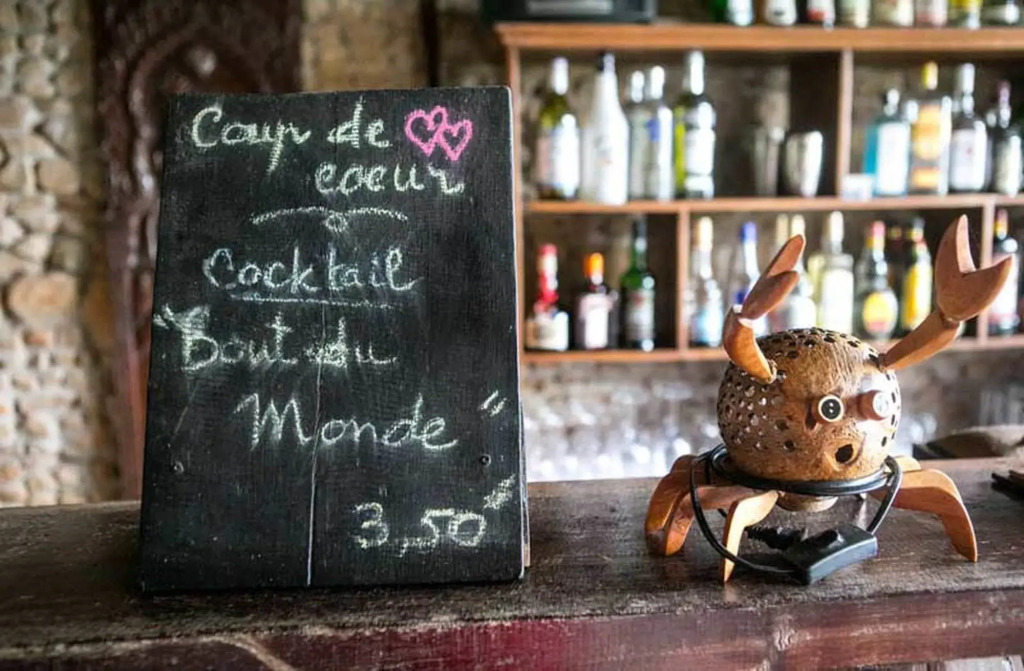 Coup de
coeur
Cocktail
"Bout du
Monde"
3,50